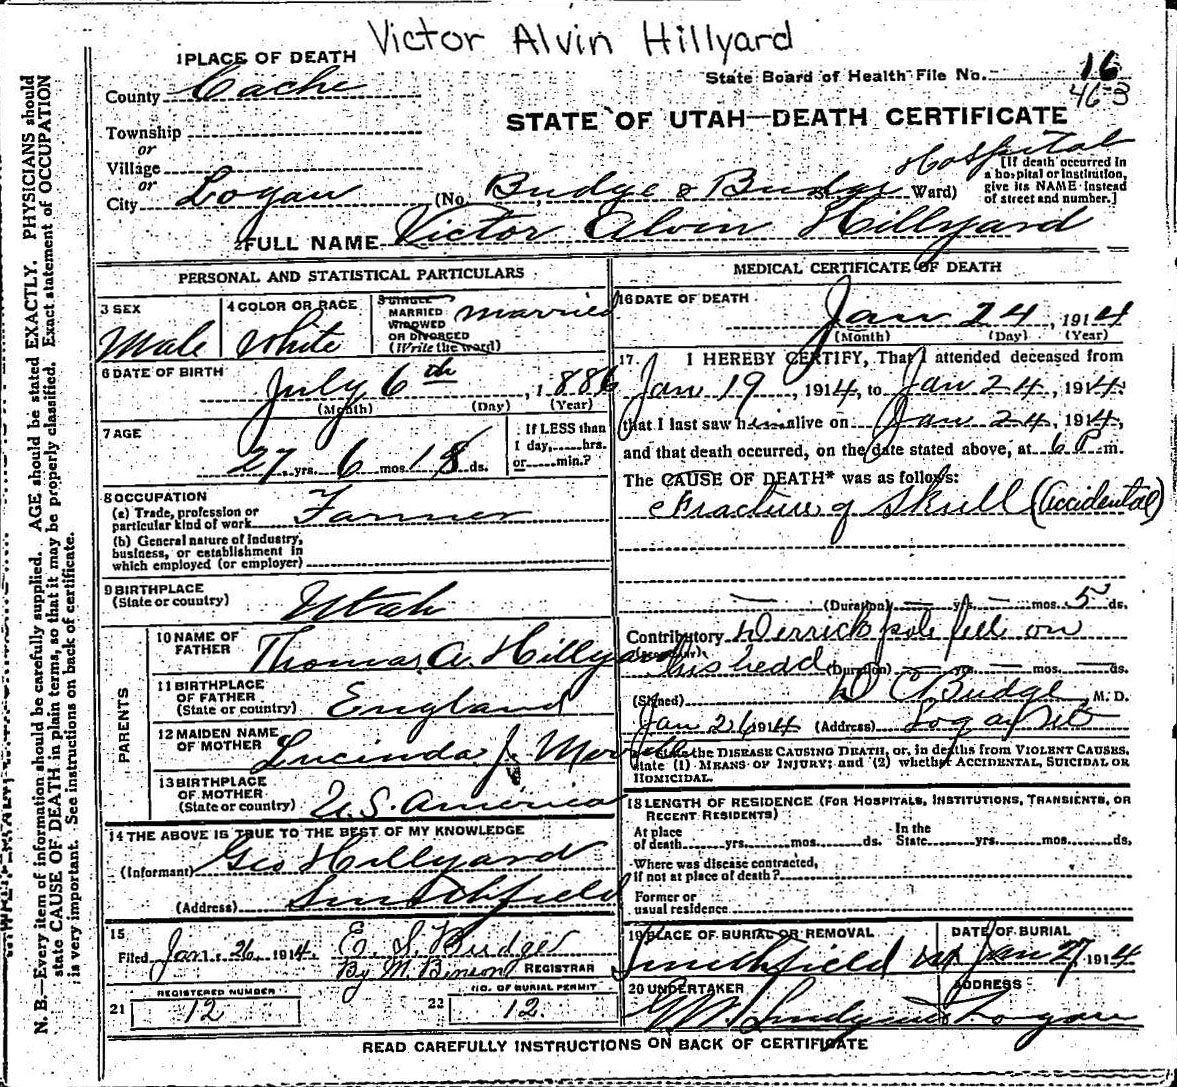 Victor Alvin Hillyard
1 PLACE OF DEATH
State Board of Health File No. 16
County Cache
46-B
STATE OF UTAH—DEATH CERTIFICATE
Township
or
Village
or
City Logan (No. Budge & Budge Hospital St. Ward)
[If death occurred in
a hospital or institution,
give its NAME instead
of street and number.]
FULL NAME Victor Alvin Hillyard
PERSONAL AND STATISTICAL PARTICULARS
3 SEX
Male
4 COLOR OR RACE
White
5 SINGLE
MARRIED
WIDOWED
OR DIVORCED
(Write the word)
married
6 DATE OF BIRTH
July 6th, 1886
(Month) (Day) (Year)
7 AGE
27 yrs. 6 mos. 18 ds.
If LESS than
1 day, hrs.
or min.?
8 OCCUPATION
(a) Trade, profession or
particular kind of work Farmer
(b) General nature of industry,
business, or establishment in
which employed (or employer)
9 BIRTHPLACE
(State or country) Utah
PARENTS
10 NAME OF
FATHER Thomas A. Hillyard
11 BIRTHPLACE
OF FATHER
(State or country) England
12 MAIDEN NAME
OF MOTHER Lucinda J.
13 BIRTHPLACE
OF MOTHER
(State or country) U.S. America
14 THE ABOVE IS TRUE TO THE BEST OF MY KNOWLEDGE
(Informant) Geo Hillyard
(Address) Smithfield
15
Filed Jan. 26, 1914. E. S. Budge
By M. Benson REGISTRAR
21 REGISTERED NUMBER 12
22 NO. OF BURIAL PERMIT 12
MEDICAL CERTIFICATE OF DEATH
16 DATE OF DEATH
Jan 24, 1914
(Month) (Day) (Year)
17. I HEREBY CERTIFY, That I attended deceased from
Jan 19, 1914, to Jan 24, 1914.
that I last saw him alive on Jan 24, 1914,
and that death occurred, on the date stated above, at 6 P.m.
The CAUSE OF DEATH* was as follows:
Fracture of Skull (Accidental)
(Duration) — yrs. — mos. 5 ds.
Contributory Derrick pole fell on
(Secondary) his head (Duration) — yrs. — mos. — ds.
(Signed) D C Budge, M.D.
Jan 26 1914 (Address) Logan
* State the DISEASE CAUSING DEATH, or, in deaths from VIOLENT CAUSES,
state (1) MEANS OF INJURY; and (2) whether ACCIDENTAL, SUICIDAL OR
HOMICIDAL.
18 LENGTH OF RESIDENCE (FOR HOSPITALS, INSTITUTIONS, TRANSIENTS, OR
RECENT RESIDENTS)
At place
of death yrs. mos. ds.
In the
State yrs. mos. ds.
Where was disease contracted,
if not at place of death?
Former or
usual residence
19 PLACE OF BURIAL OR REMOVAL
Smithfield
DATE OF BURIAL
Jan 27 1914
20 UNDERTAKER
ADDRESS
Logan
READ CAREFULLY INSTRUCTIONS ON BACK OF CERTIFICATE
N. B.—Every item of information should be carefully supplied. AGE should be stated EXACTLY. PHYSICIANS should
state CAUSE OF DEATH in plain terms, so that it may be properly classified. Exact statement of OCCUPATION
is very important. See instructions on back of certificate.